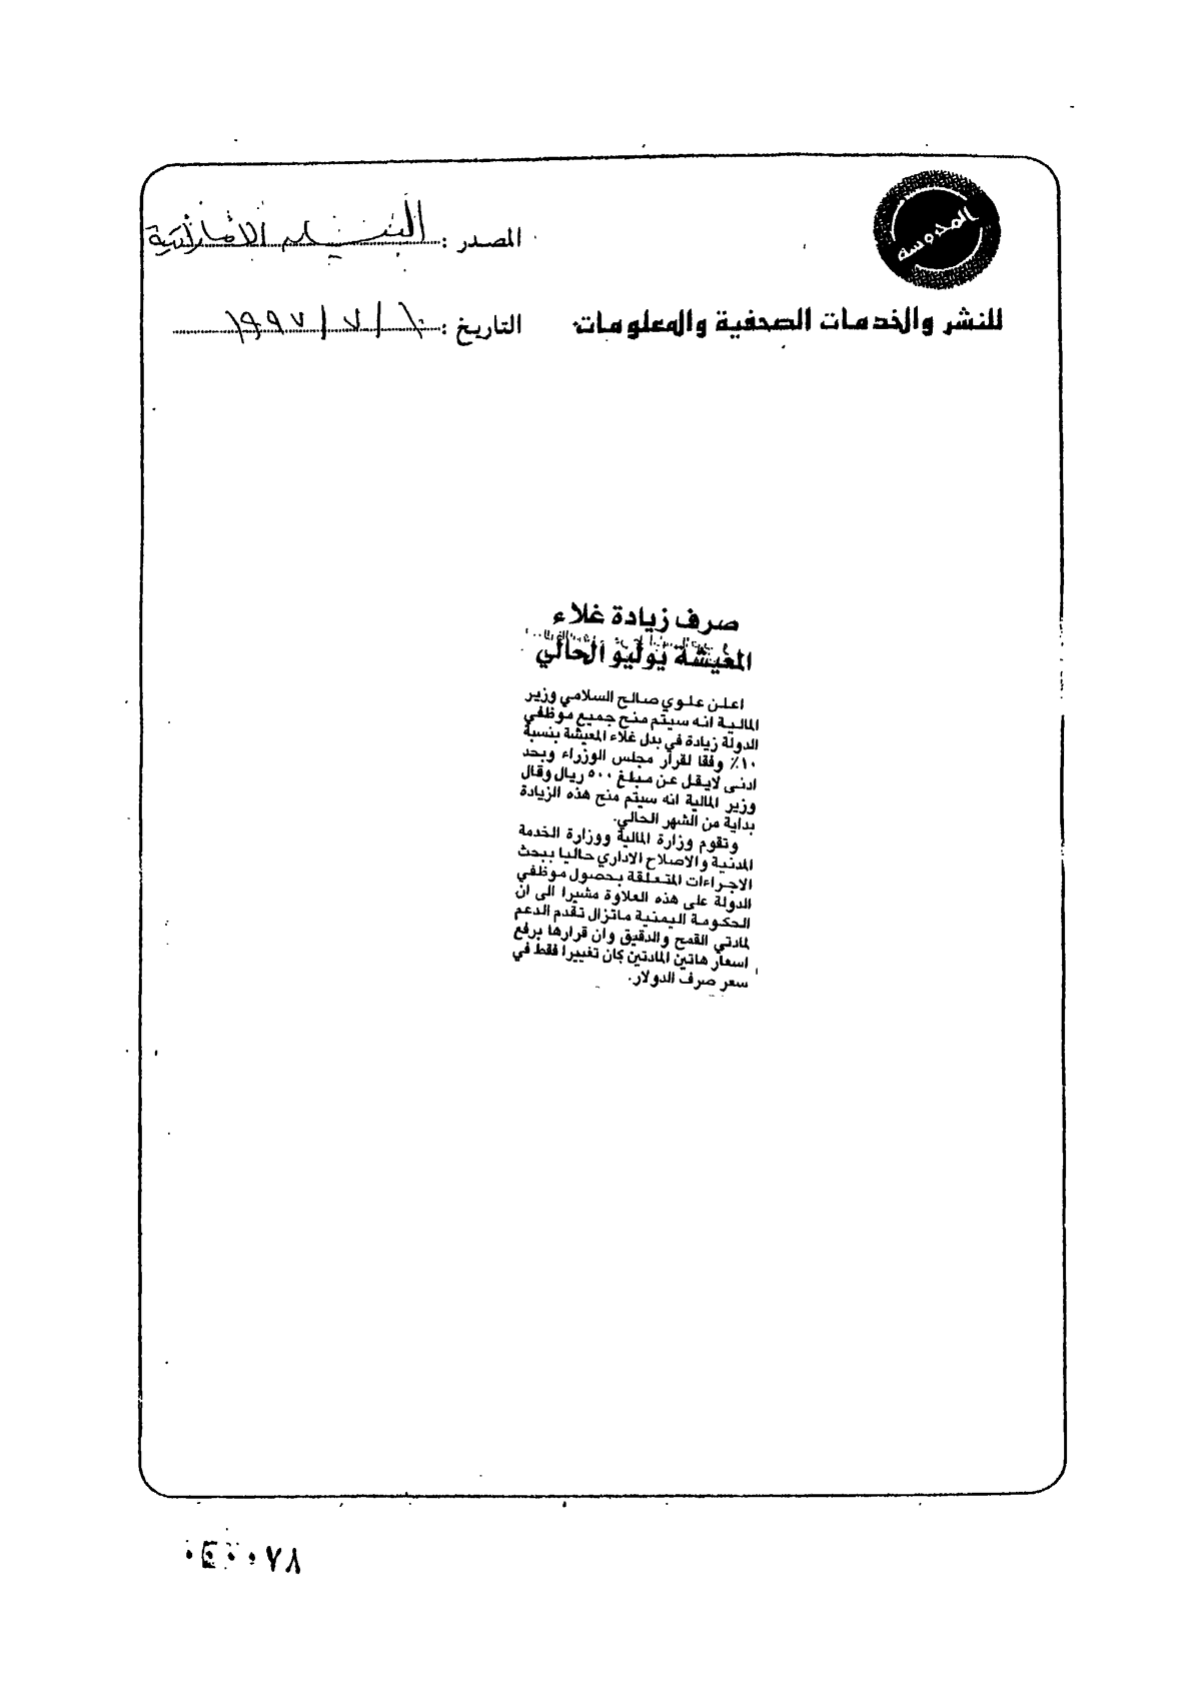 المحروسة
للنشر والخدمات الصحفية والمعلومات
المصدر : البيان الإماراتية
التاريخ : ١٠ / ٧ / ١٩٩٧
صرف زيادة غلاء
المعيشة يوليو الحالي
اعلن علوي صالح السلامي وزير
المالية انه سيتم منح جميع موظفي
الدولة زيادة في بدل غلاء المعيشة بنسبة
١٠٪ وفقا لقرار مجلس الوزراء وبحد
ادنى لايقل عن مبلغ ٥٠٠ ريال وقال
وزير المالية انه سيتم منح هذه الزيادة
بداية من الشهر الحالي.
وتقوم وزارة المالية ووزارة الخدمة
المدنية والاصلاح الاداري حاليا ببحث
الاجراءات المتعلقة بحصول موظفي
الدولة على هذه العلاوة مشيرا الى ان
الحكومة اليمنية ماتزال تقدم الدعم
لمادتي القمح والدقيق وان قرارها برفع
اسعار هاتين المادتين كان تغييرا فقط في
سعر صرف الدولار.